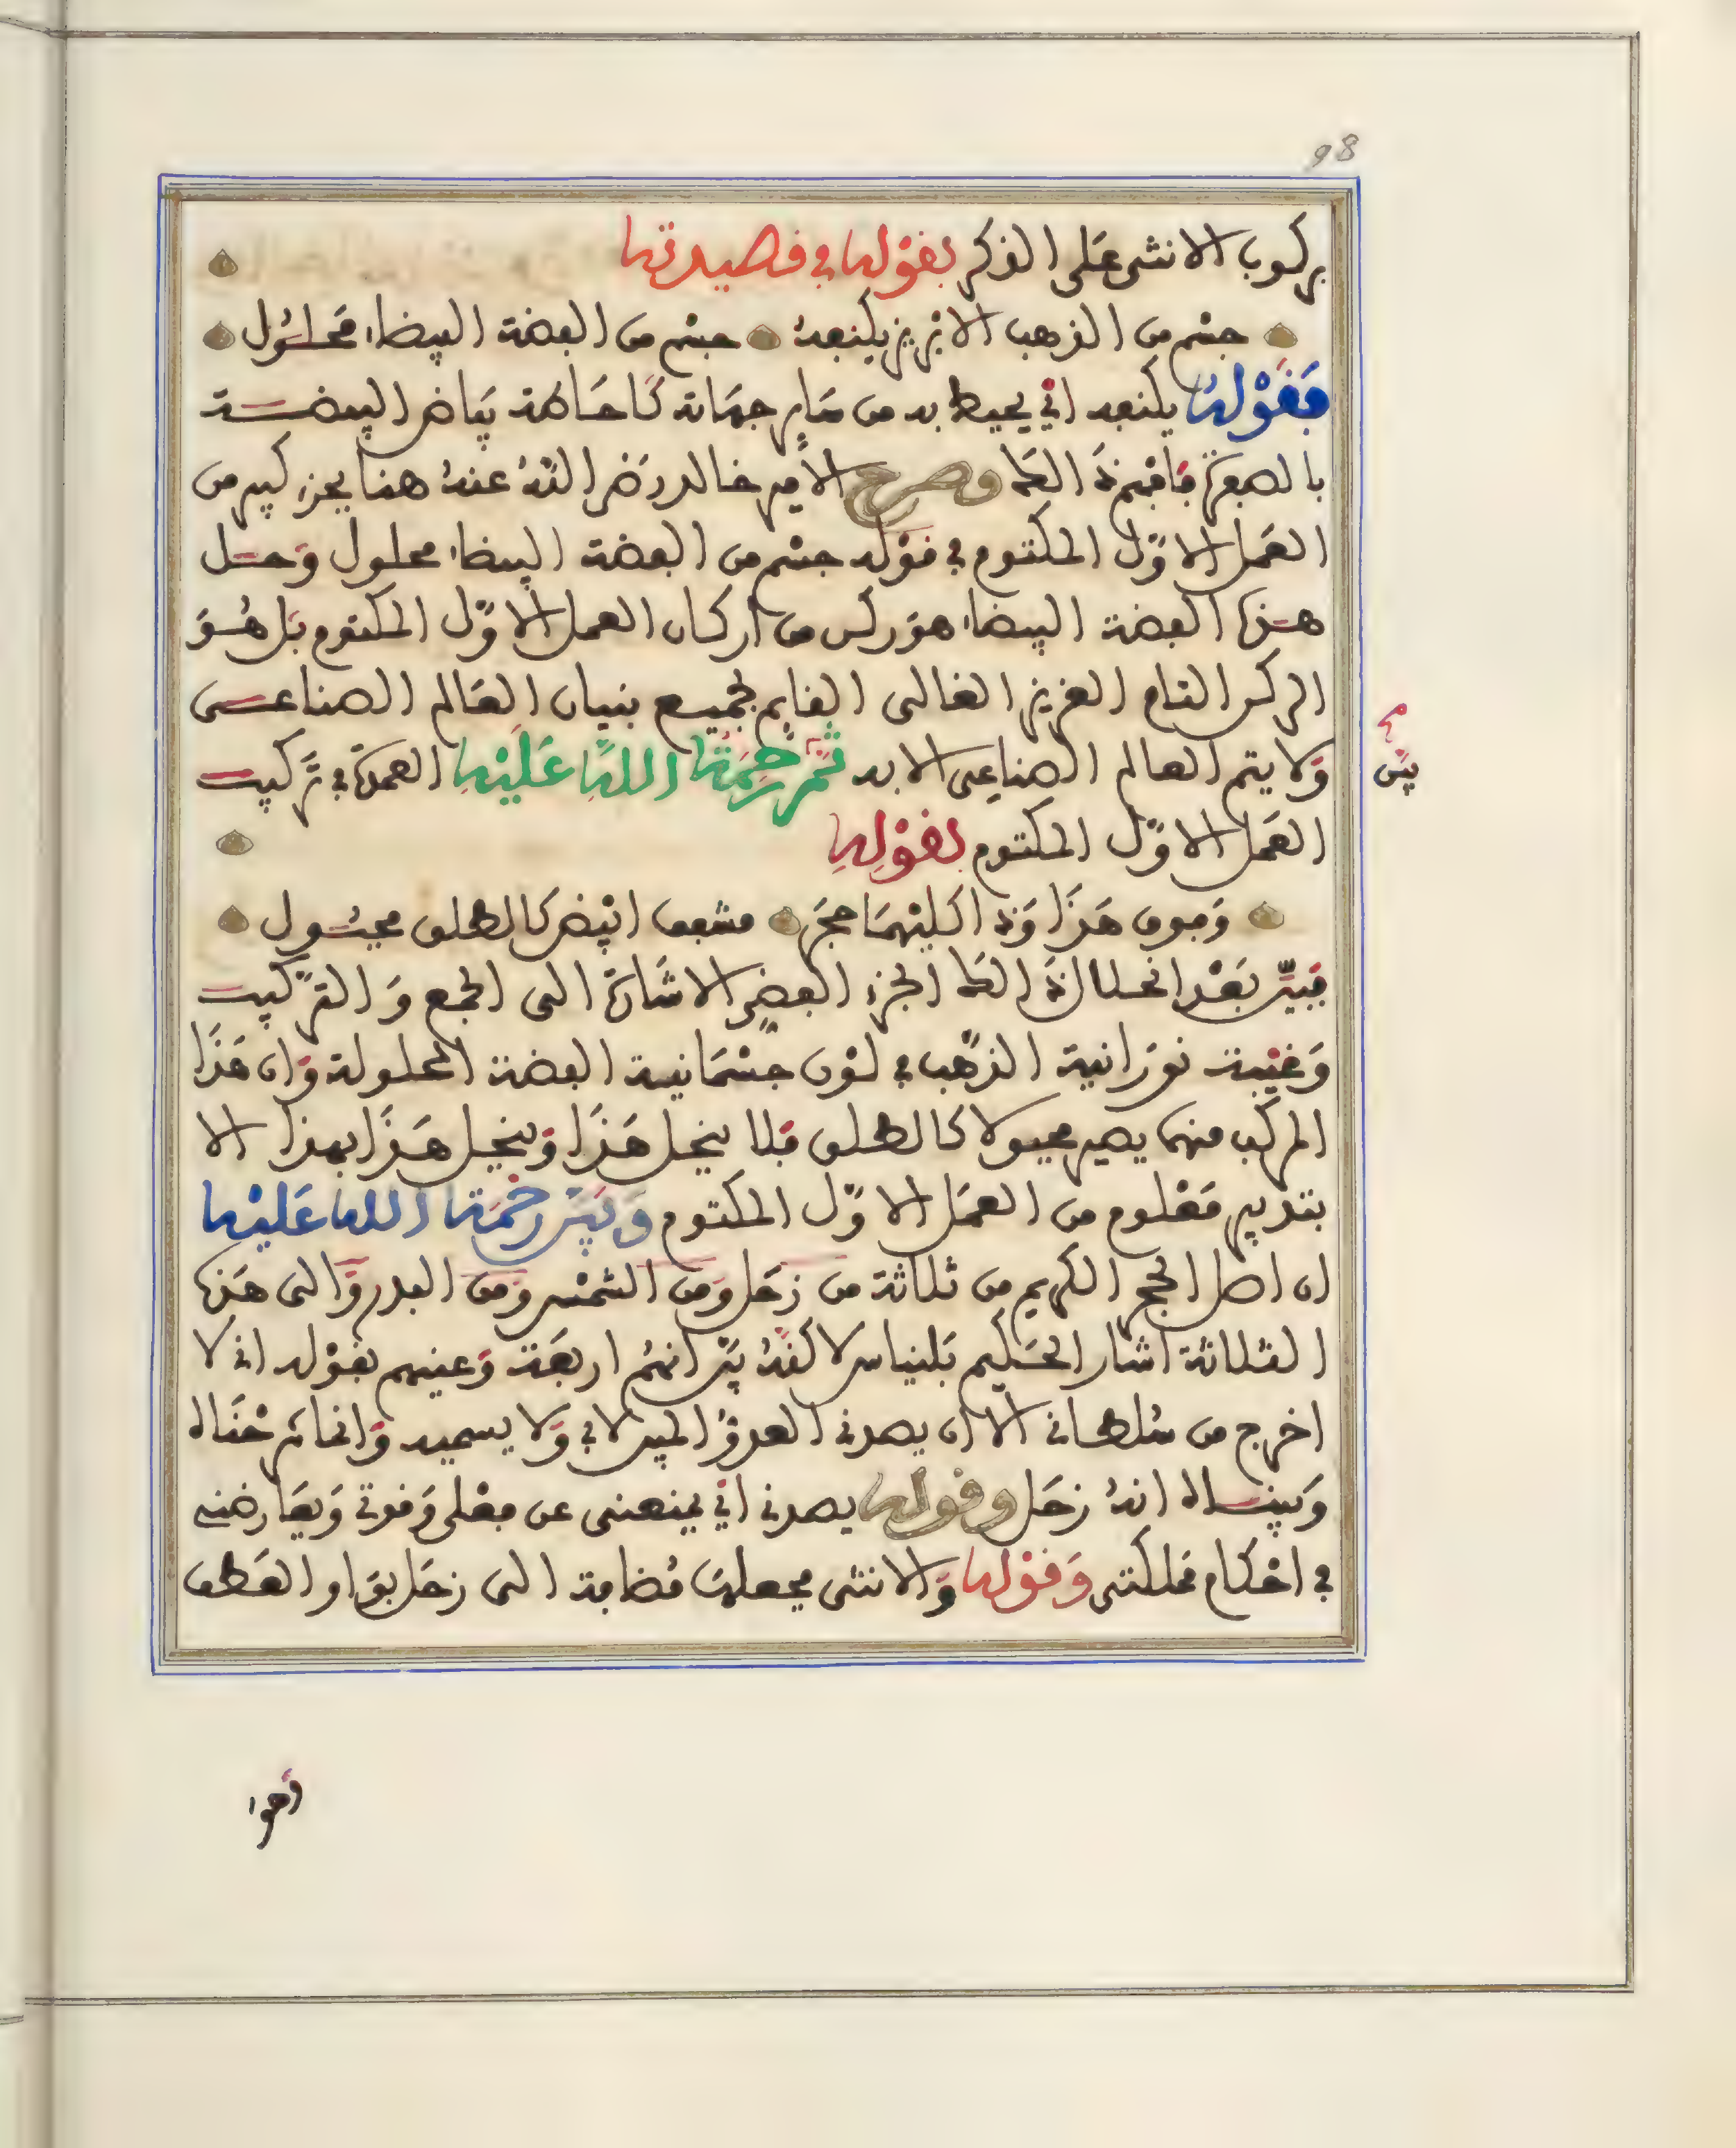 98
بركوب الانثى على الذكر بقوله في قصيدته
جسم من الذهب الابريز يكنفه جسم من الفضة البيضاء محلول
فقوله يكنفه اي يحيط به من ساير جهاته كاحاطة بياض البيضة
بالصفرة فافهم ذلك وصرح الامير خالد رضي الله عنه هنا بجزء كبير من
العمل الاول المكتوم في قوله جسم من الفضة البيضاء محلول وحل
هذه الفضة البيضاء هو ركن من اركان العمل الاول المكتوم بل هو
الركن التام العزيز الغالى القايم لجميع بنيان العالم الصناعى
ولا يتم العالم الصناعى الا به ثم رحمة الله عليه العمدة في تركيب
بين
العمل الاول المكتوم بقوله
وفوق هذا وذا كليهما حجر مشفف ابيض كالطلق مجبول
فبين بعد انحلال ذلك الجزء الفضي الاشارة الى الجمع والتركيب
وغيبة نورانية الذهب في لون جسمانية الفضة المحلولة وان هذا
المركب منهما يصير مجبولا كالطلق فلا ينحل هذا وينحل هذا بهذا الا
بتدبير معلوم من العمل الاول المكتوم وبين رحمة الله عليه
ان اصل الحجر الكريم من ثلاثة من زحل ومن الشمس ومن البدر والى هذه
الثلاثة اشار الحكيم بلنياس لاكنه بين انهم اربعة وعينهم بقوله اني لا
اخرج من سلطاني الا ان يصدني العدو المبين لاني ولا يسميه وانما ثم خناه
وبيناه انه زحل وقوله يصدني اي يمنعنى عن فعلى وقوتي ويعارضنى
في احكام مملكتى وقوله والانثى فجعلها مضافة الى زحل بواو العطف